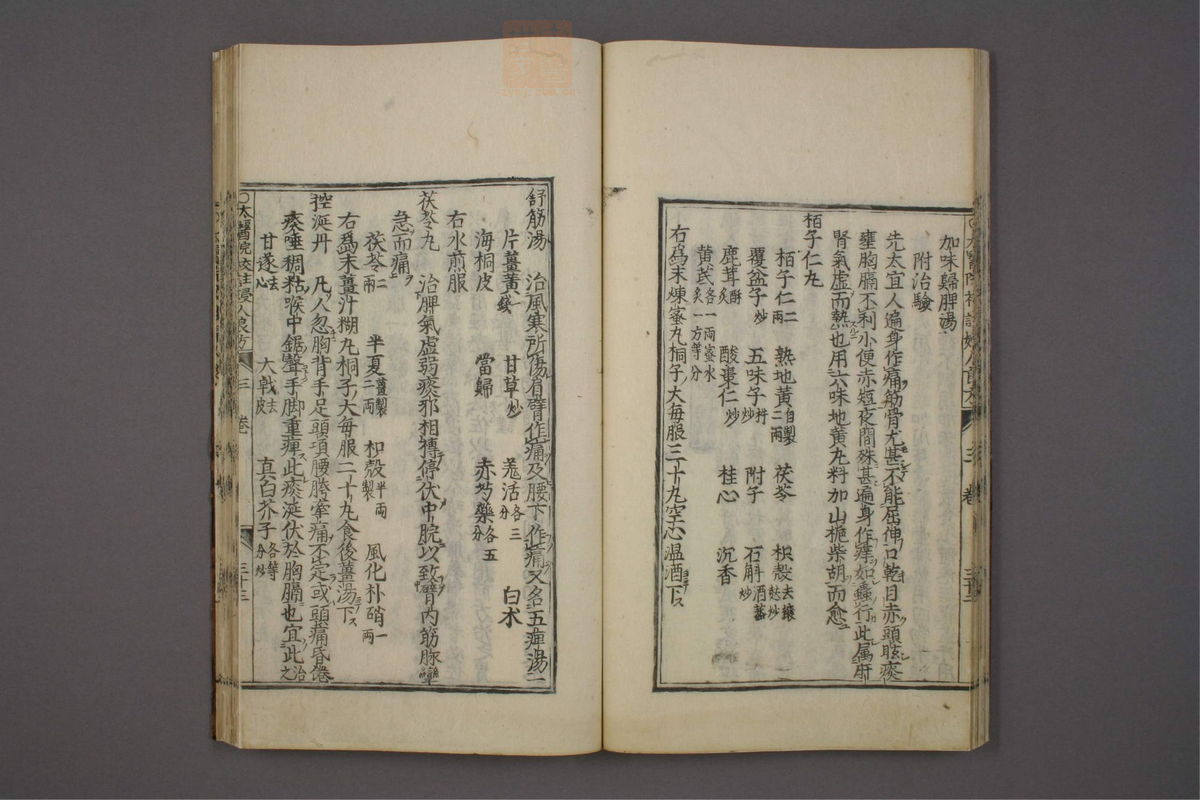 加味歸脾湯
附治驗
先太宜人遍身作痛筋骨尤甚不能屈伸口乾目赤頭眩痰
壅胸膈不利小便赤短夜間殊甚遍身作痒如蟲行此属肝
腎氣虚而熱也用六味地黄丸料加山梔柴胡而愈
栢子仁丸
栢子仁二兩 熟地黄自製二兩 茯苓 枳殻去穰麩炒
覆盆子炒 五味子炒 附子 石斛酒蒸炒
鹿茸酥炙 酸棗仁炒 桂心 沉香
黄芪各一兩蜜水炙一方等分
右為末煉蜜丸桐子大每服三十丸空心温酒下
舒筋湯 治風寒所傷肩臂作痛及腰下作痛又名五痺湯
片薑黄二錢 甘草炒 羗活各三分 白朮
海桐皮 當歸 赤芍藥各五分
右水煎服
茯苓丸 治脾氣虚弱痰邪相搏停伏中脘以致臂内筋脉攣
急而痛
茯苓二兩 半夏薑製二兩 枳殻半兩製 風化朴硝一兩
右為末薑汁糊丸桐子大每服二十丸食後薑湯下
控涎丹 凡人忽胸背手足頭項腰胯牽痛不定或頭痛昏倦
痰唾稠粘喉中鋸聲手脚重痺此痰涎伏於胸膈也宜此治之
甘遂去心 大戟去皮 真白芥子各等分炒
太醫院校註婦人良方 三卷 三十三